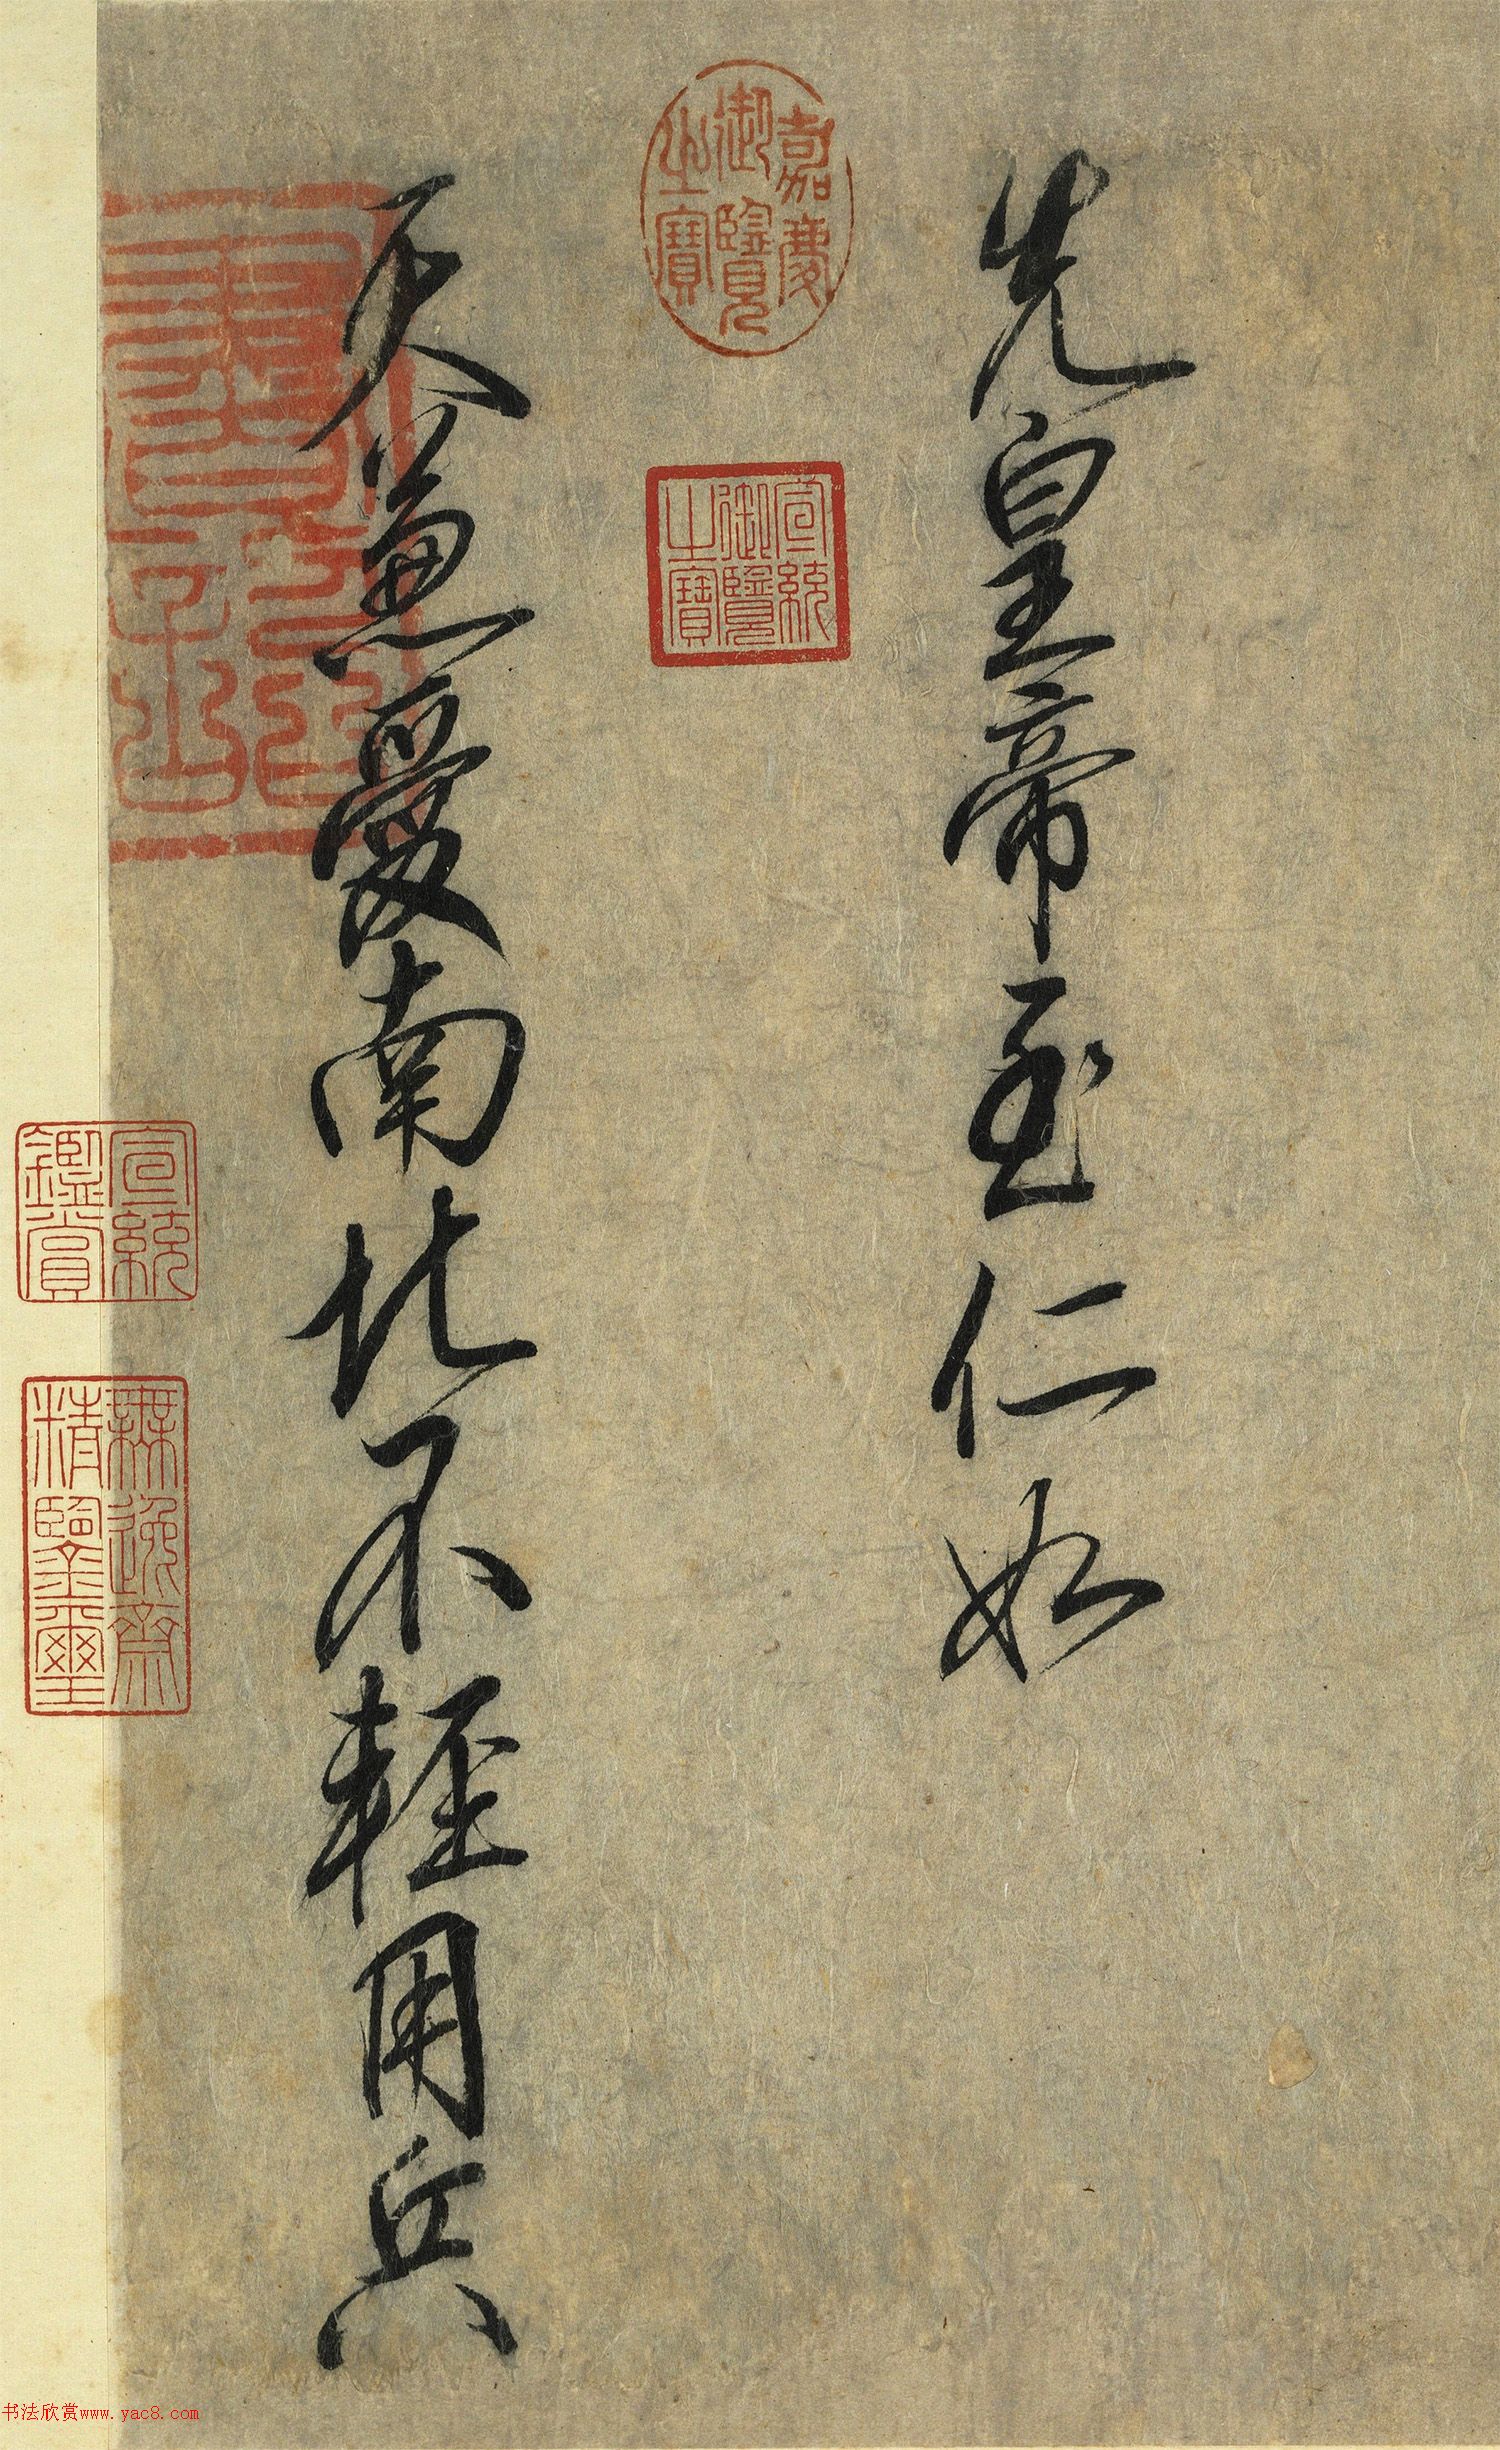 先皇帝至仁如
天兼愛南北不輕用兵
嘉慶御覽之寶
宣統御覽之寶
宣統鑑賞
無逸齋精鑒璽
书法欣赏www.yac8.com